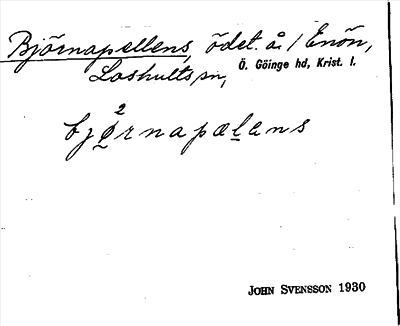 Björnapellens, ödet. å. / Enön,
Loshults sn, Ö. Göinge hd, Krist. l.
2
bjørnapælans
JOHN SVENSSON 1930